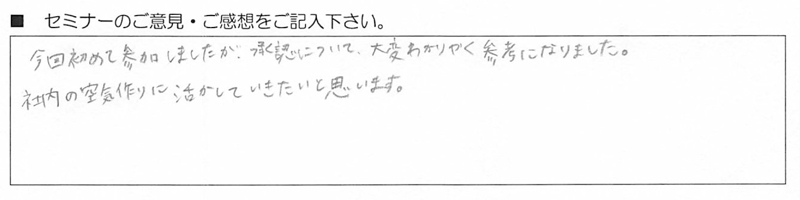 ■ セミナーのご意見・ご感想をご記入下さい。
今回初めて参加しましたが、承認について、大変わかりやく参考になりました。
社内の空気作りに活かしていきたいと思います。